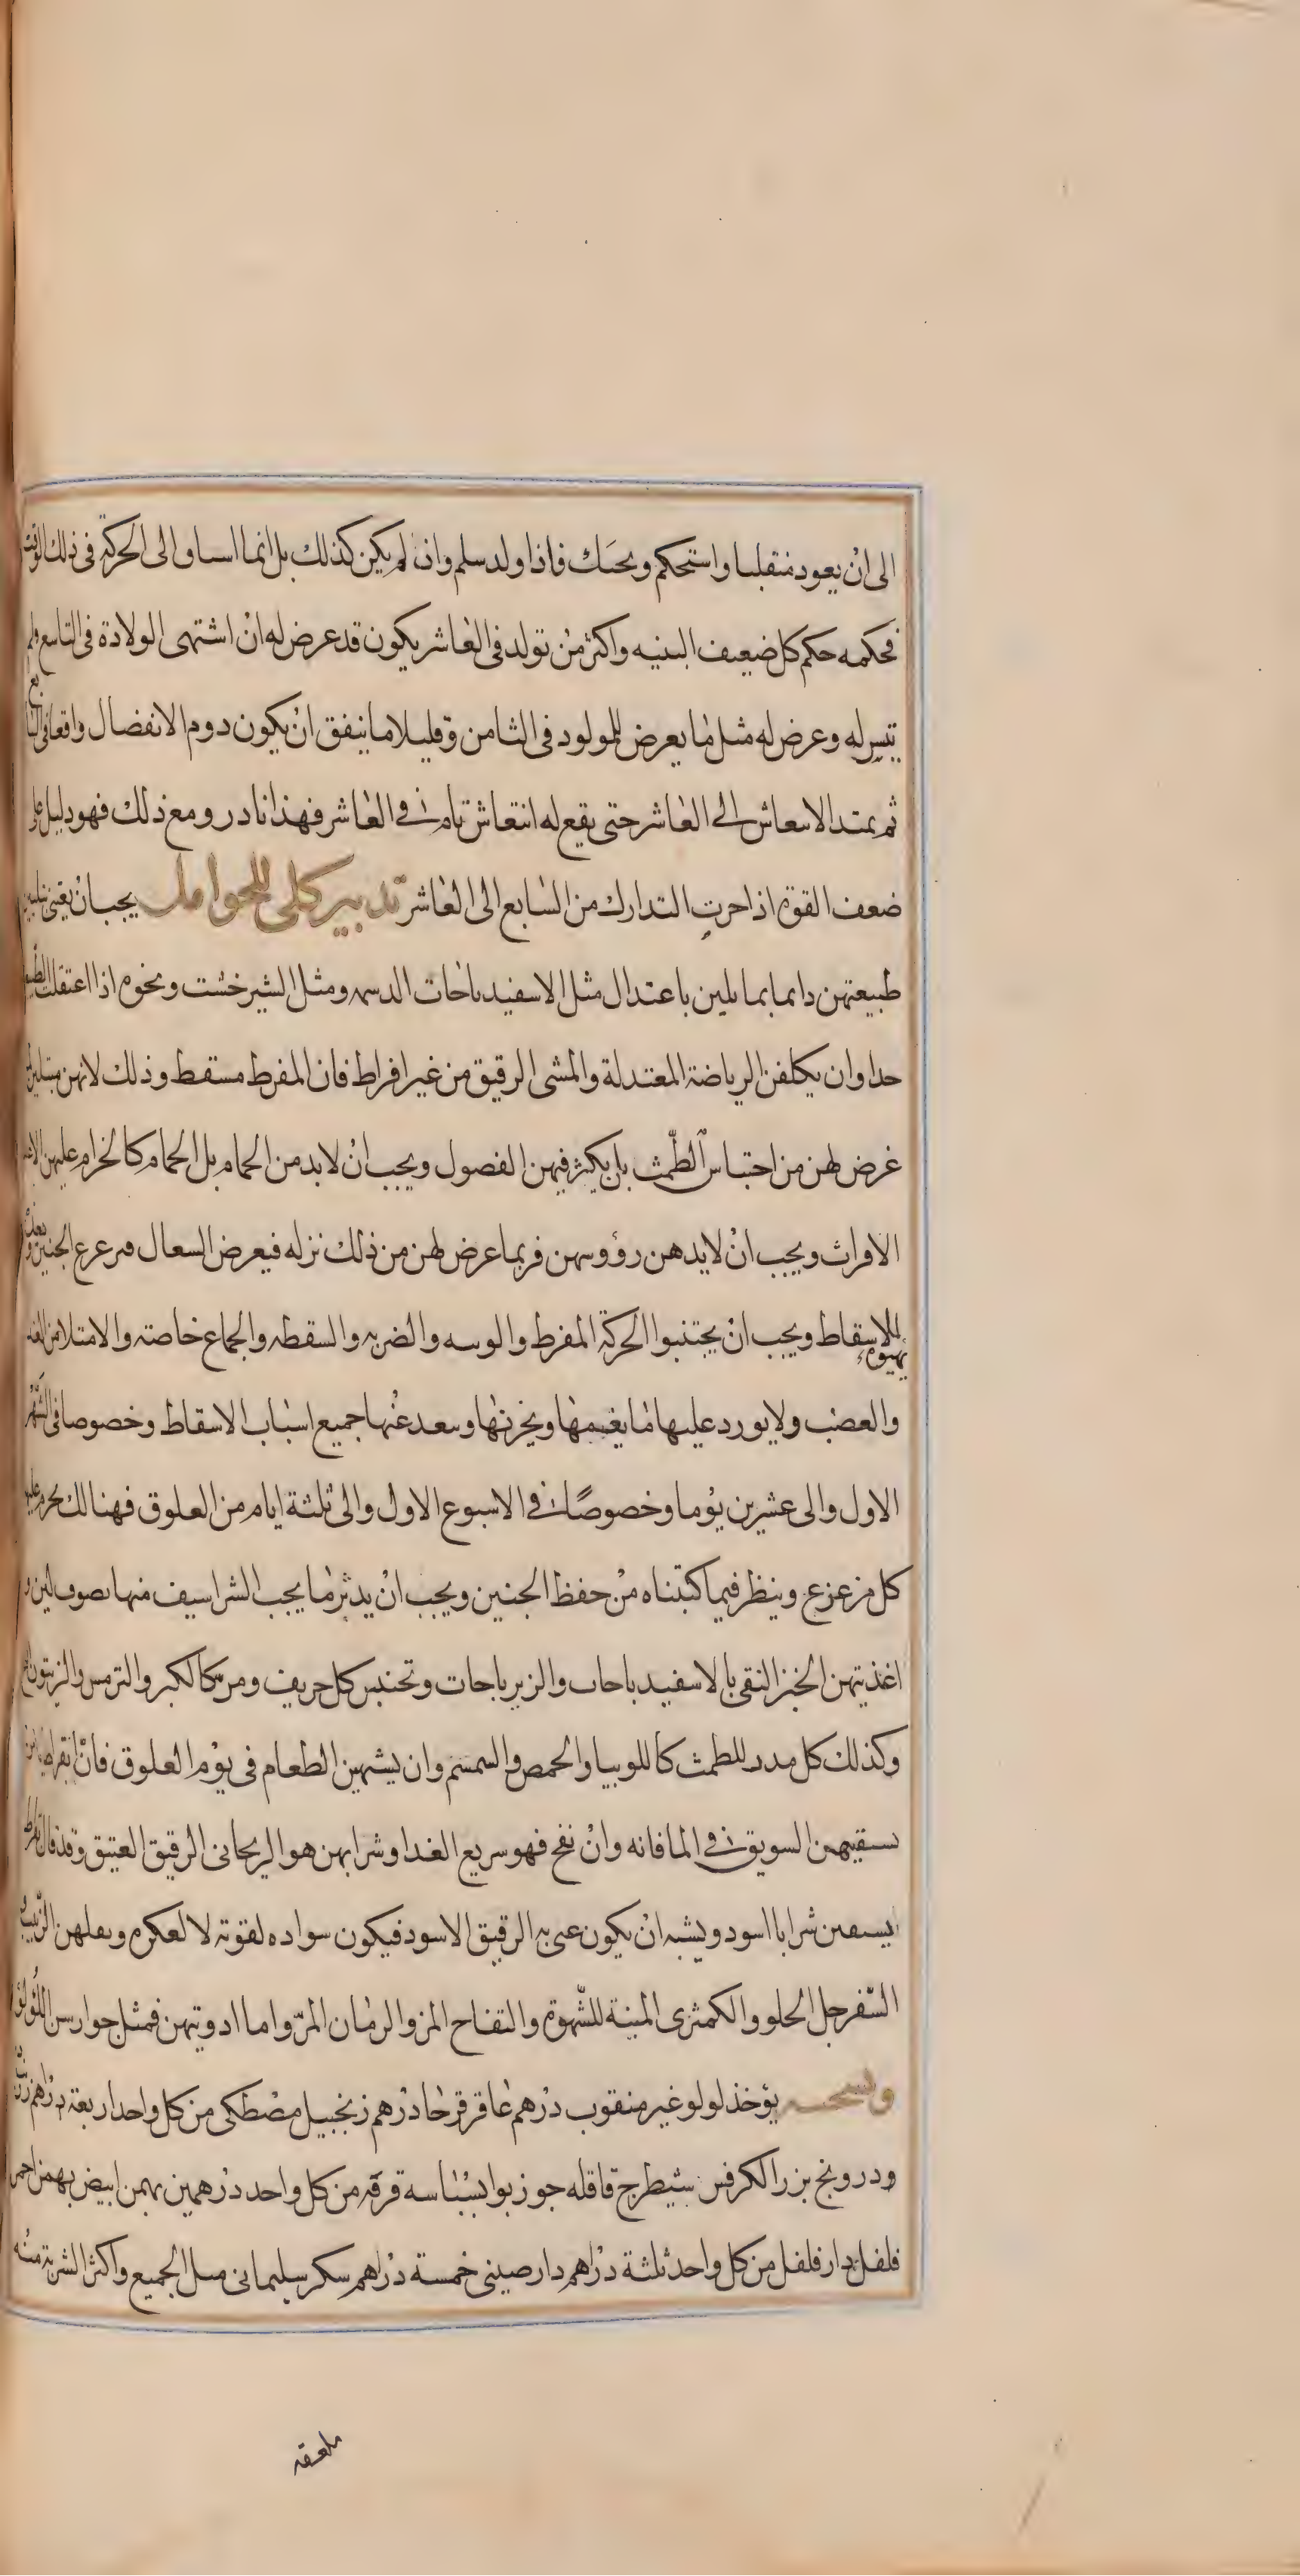 الى ان يعود منقلبا واستحكم ويحنك فاذا ولد سلم وان لم يكن كذلك بل انما اساوالى الحركة فى ذلك الوقت
فحكمه حكم كل ضعيف البنيه واكثر من تولد فى العاشر يكون قد عرض له ان اشتهى الولادة فى التاسع فلم
يتيسر له وعرض له مثل ما يعرض للمولود فى الثامن وقليلا ما يتفق ان يكون دوم الانفصال واقعا فى
ثم يمتد الاسعاش الى العاشر حتى يقع له انتعاش تام فى العاشر فهذا نادر ومع ذلك فهو دليل على
ضعف القوة اذا حرت التدارك من السابع الى العاشر تدبير كلى للحوامل يجب ان يعتنى بتليين
طبيعتهن دايما بما يلين باعتدال مثل الاسفيدباحات الدسمه ومثل الشيرخشت ونحوه اذا اعتقلت الطبيعة
حدا وان يكلفن الرياضة المعتدلة والمشى الرقيق من غير افراط فان المفرط مسقط وذلك لانهن يبتلين
غرض لهن من احتباس الطمث بان يكثر فيهن الفصول ويجب ان لا بد من الحمام بل الحمام كالخرام عليهن الا
الاقراث ويجب ان لا يدهن رؤوسهن فربما عرض لهن من ذلك نزله فيعرض السعال فرعرع الجنين ويعده
للاسقاط ويجب ان يجتنبوا الحركة المفرط والوسه والضربه والسقطه والجماع خاصته والامتلا من الغذا
يهيوه
والعضب ولا يورد عليها ما يغيمها ويخرنها وسعد عنها جميع اسباب الاسقاط وخصوصا فى الشهر
الاول والى عشرين يوما وخصوصا فى الاسبوع الاول والى ثلثة ايام من العلوق فهنالك يحرم عليها
كل مزعزع وينظر فيما كتبناه من حفظ الجنين ويجب ان يدثر ما يجب الشراسيف منها بصوف لين و
اغذيتهن الخبز النقى بالاسفيدباحاب والزيرباجات وتحنبن كل حريف ومر كالكبر والترمس والزيتون
وكذلك كل مدر للطمث كاللوبيا والحمص والسمسم وان يشتهين الطعام فى يوم العلوق فان بقراط
سقيهن السويق فى الما فانه وان نفخ فهو سريع الغدا وشرابهن هو الريحانى الرقيق العتيق وقد قال بقراط
يسقين شرابا اسود ويشبه ان يكون عنى به الرقيق الاسود فيكون سواده لقوته لا لعكره ونقلهن الزبيب و
السفرجل الحلو والكمثرى المنبة للشهوة والتفاح المز والرمان المز واما ادويتهن فمثل جوارسن اللولو
ونسخته يؤخذ لولو غير منقوب درهم عاقر قرحا درهم زنجبيل مصطكى من كل واحد اربعة دراهم
ودرونج بزر الكرفس شيطرج قاقله جوزبوا بسباسه قرفة من كل واحد درهمين بهمن ابيض بهمن احمر
فلفل دارفلفل من كل واحد ثلثة دراهم دارصينى خمسة دراهم سكر سليمانى مثل الجميع واكثر الشربة منه
ملعقه